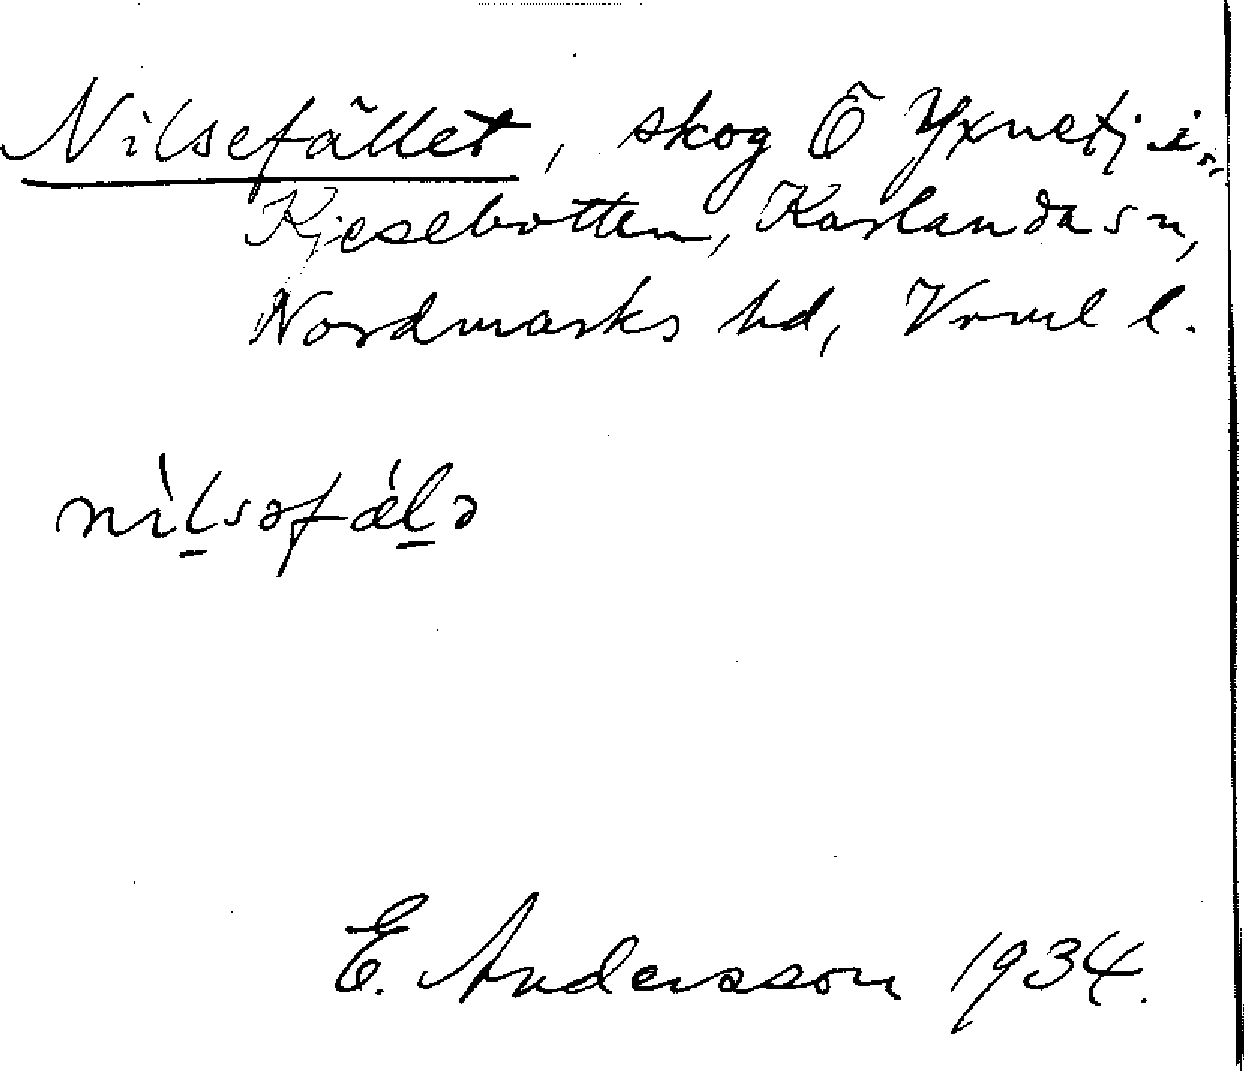 Nilsefället, skog Ö Yxnetj i
Kjesebotten, Karlanda sn,
Nordmarks hd, Vrml l.
nìlsəfǽlə
E. Andersson 1934.